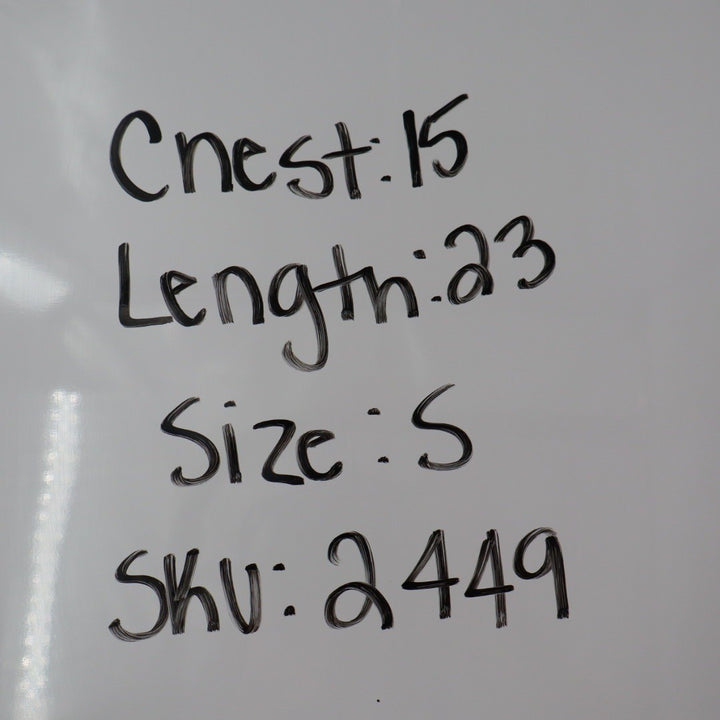 Chest:15
Length:23
Size:S
SKU:2449